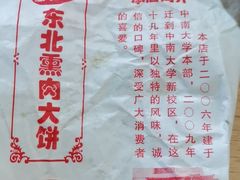 东北熏肉大饼
本店于二〇〇六年建于
中南大学本部，二〇〇九年
迁到中南大学新校区，在这
十几年里以独特的风味，诚
信的口碑，深受广大消费者
的喜爱。